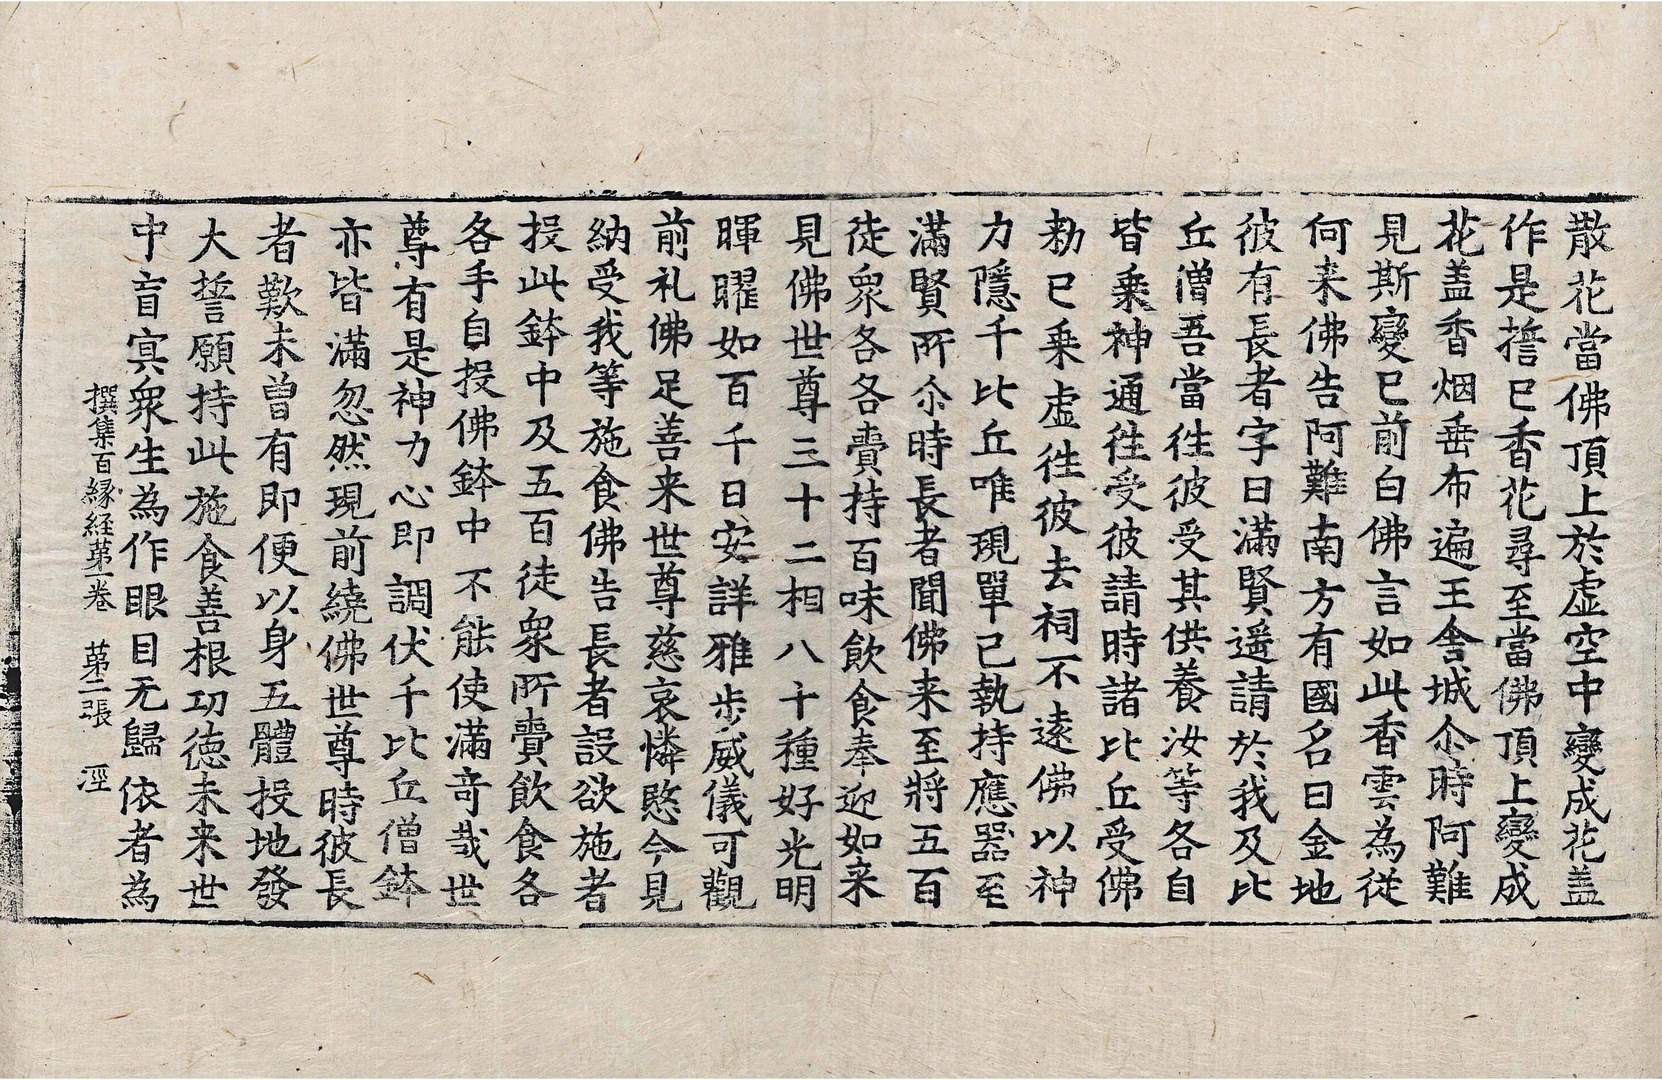 散花當佛頂上於虛空中變成花盖
作是擔已香花尋至當佛頂上變成
花盖香烟垂布遍王舍城尒時阿難
見斯變已前白佛言如此香雲為從
何来佛告阿難南方有國名曰金地
彼有長者字曰滿賢遥請於我及比
丘僧吾當往彼受其供養汝等各自
皆乗神通往受彼請時諸比丘受佛
勑已乗虛往彼去祠不遠佛以神
力隱千比丘唯現單己執持應器至
滿賢所尒時長者聞佛来至將五百
徒衆各各賷持百味飲食奉迎如来
見佛世尊三十二相八十種好光明
暉曜如百千日安詳雅步威儀可觀
前礼佛足善来世尊慈哀憐愍今見
納受我等施食佛告長者設欲施者
投此鉢中及五百徒衆所賷飲食各
各手自投佛鉢中不能使滿竒哉世
尊有是神力心即調伏千比丘僧鉢
亦皆滿忽然現前繞佛世尊時彼長
者歎未曾有即便以身五體投地發
大誓願持此施食善根功徳未来世
中盲冥衆生為作眼目无歸依者為
撰集百縁経苐一卷 苐二張 涇